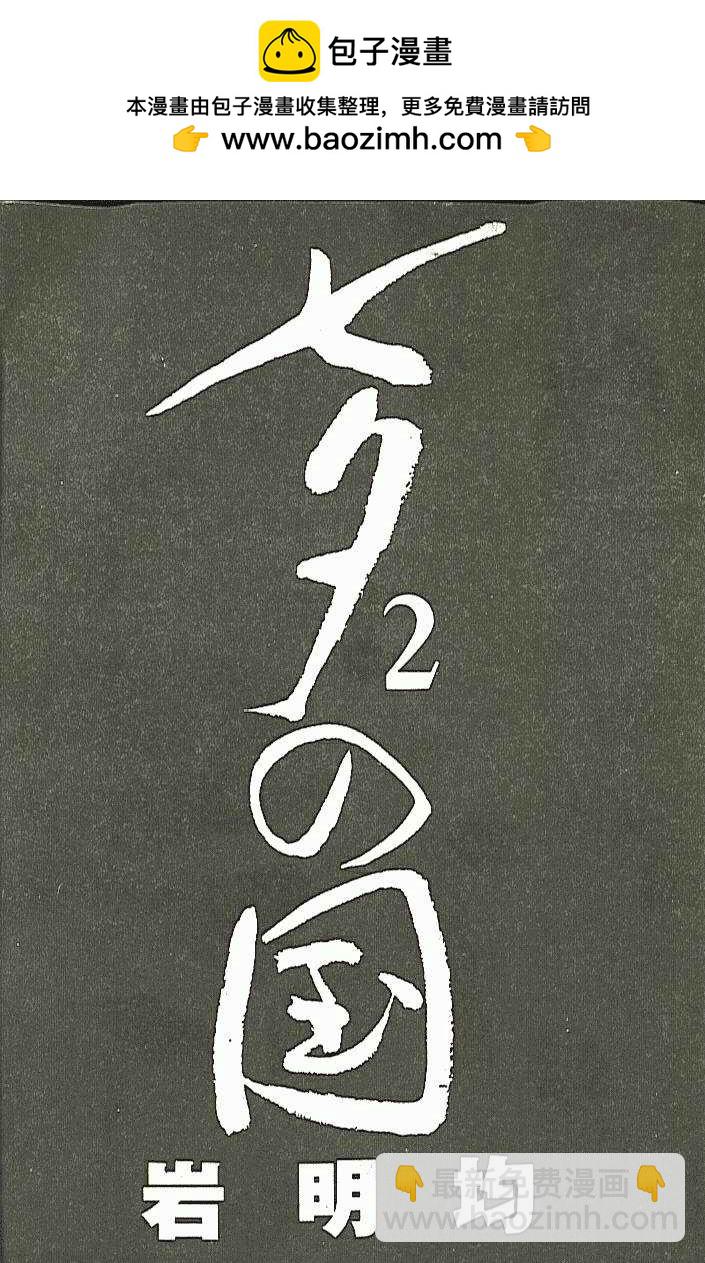 包子漫畫
本漫畫由包子漫畫收集整理，更多免費漫畫請訪問
👉 www.baozimh.com 👈
七夕の国
2
岩明均
👇最新免费漫画👇
www.baozimh.com